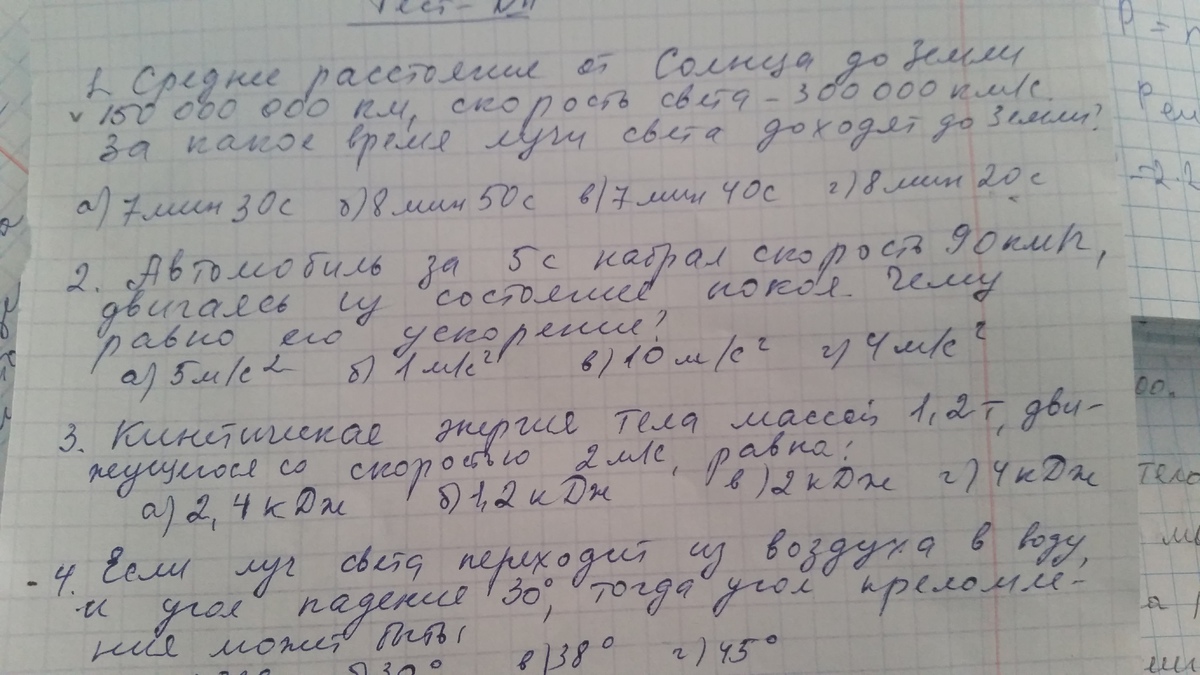 Тест - №1
1. Среднее расстояние от Солнца до Земли
150 000 000 км, скорость света - 300 000 км/с.
За какое время лучи света доходят до Земли?
а) 7 мин 30 с б) 8 мин 50 с в) 7 мин 40 с г) 8 мин 20 с
2. Автомобиль за 5 с набрал скорость 90 км/ч,
двигаясь из состояние покоя. Чему
равно его ускорение?
а) 5 м/с² б) 1 м/с² в) 10 м/с² г) 4 м/с²
3. Кинетическая энергия тела массой 1,2 т, дви-
жущегося со скоростью 2 м/с, равна:
а) 2,4 кДж б) 1,2 кДж в) 2 кДж г) 4 кДж
4. Если луч света переходит из воздуха в воду,
и угол падение 30°, тогда угол преломле-
ния может быть:
б) 30° в) 38° г) 45°